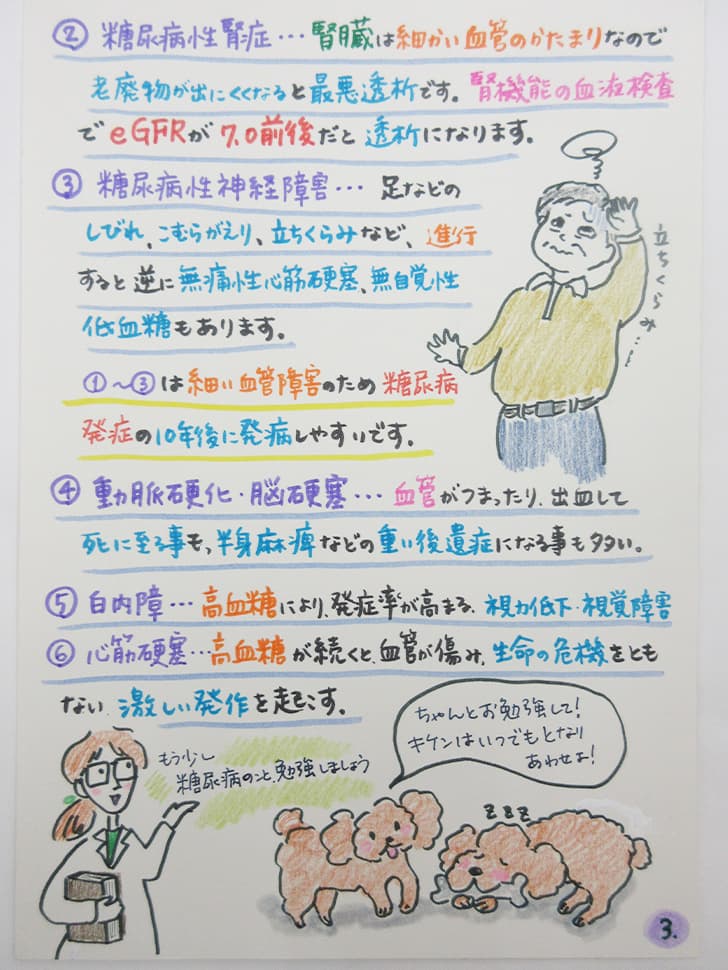 ② 糖尿病性腎症…腎臓は細かい血管のかたまりなので
老廃物が出にくくなると最悪透析です。腎機能の血液検査
でeGFRが7.0前後だと透析になります。
③ 糖尿病性神経障害… 足などの
しびれ、こむらがえり、立ちくらみなど、進行
すると逆に無痛性心筋硬塞、無自覚性
低血糖もあります。
立ちくらみ…
①～③は細い血管障害のため糖尿病
発症の10年後に発病しやすいです。
④ 動脈硬化・脳硬塞…血管がつまったり、出血して
死に至る事も、半身麻痺などの重い後遺症になる事も多い。
⑤ 白内障…高血糖により、発症率が高まる、視力低下・視覚障害
⑥ 心筋硬塞…高血糖が続くと、血管が傷み、生命の危機をとも
ない、激しい発作を起こす。
もう少し
糖尿病のこと、勉強しましょう
ちゃんとお勉強して!
キケンはいつでもとなり
あわせよ!
zzz
3.